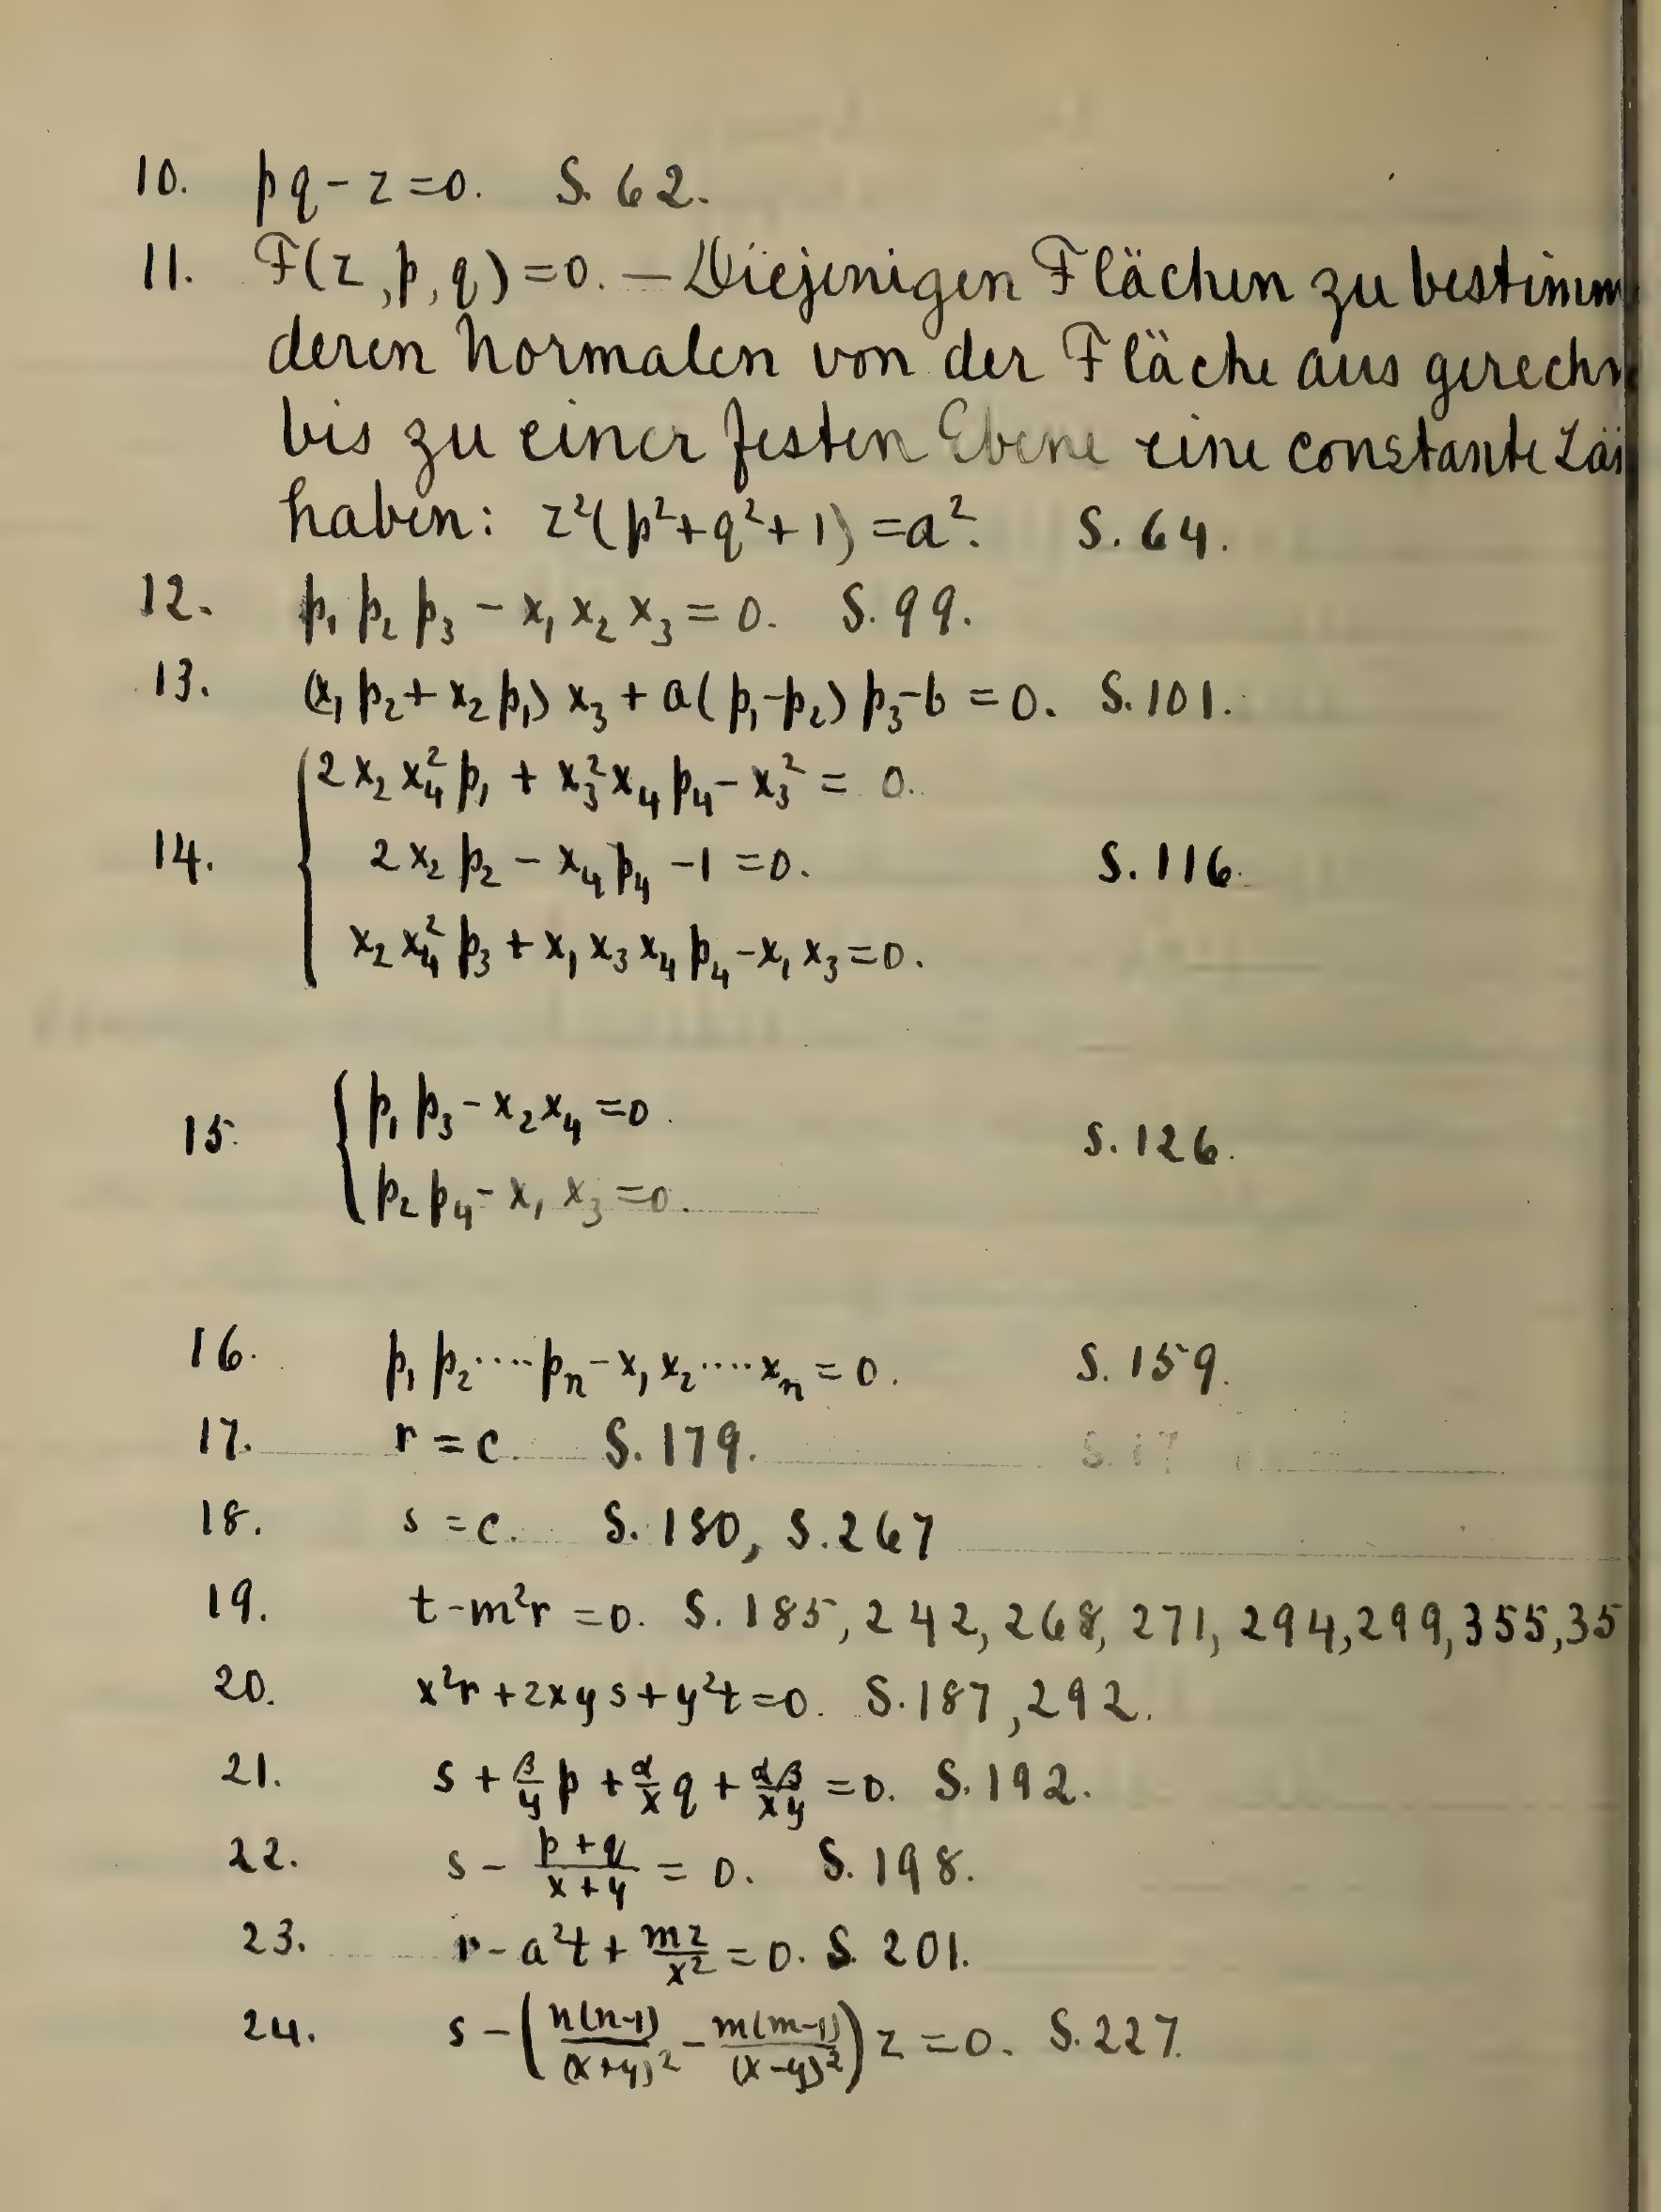 10. pq - z = 0. S. 62.
11. F(z, p, q) = 0. — Diejenigen Flächen zu bestimm
deren Normalen von der Fläche aus gerechn
bis zu einer festen Ebene eine constante Län
haben: z²(p² + q² + 1) = a². S. 64.
12. p₁ p₂ p₃ - x₁ x₂ x₃ = 0. S. 99.
13. (x₁ p₂ + x₂ p₁) x₃ + a(p₁ - p₂) p₃ - b = 0. S. 101.
2 x₂ x₄² p₁ + x₃² x₄ p₄ - x₃² = 0.
14. 2 x₂ p₂ - x₄ p₄ - 1 = 0. S. 116.
x₂ x₄² p₃ + x₁ x₃ x₄ p₄ - x₁ x₃ = 0.
p₁ p₃ - x₂ x₄ = 0.
15. S. 126.
p₂ p₄ - x₁ x₃ = 0.
16. p₁ p₂ .... pₙ - x₁ x₂ .... xₙ = 0. S. 159.
17. r = c. S. 179. S. 17
18. s = c. S. 180, S. 267
19. t - m²r = 0. S. 185, 242, 268, 271, 294, 299, 355, 35
20. x²r + 2xys + y²t = 0. S. 187, 292.
21. s + β/y p + α/x q + αβ/xy = 0. S. 192.
22. s - (p + q)/(x + y) = 0. S. 198.
23. r - a²t + mz/x² = 0. S. 201.
24. s - (n(n-1)/(x+y)² - m(m-1)/(x-y)²) z = 0. S. 227.